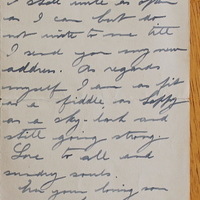 I shall write as often
as I can but do
not write to me till
I send you my new
address. As regards
myself I am as fit
as a fiddle, as happy
as a sky-lark and
still going strong.
Love to all and
sundry souls.
your loving son